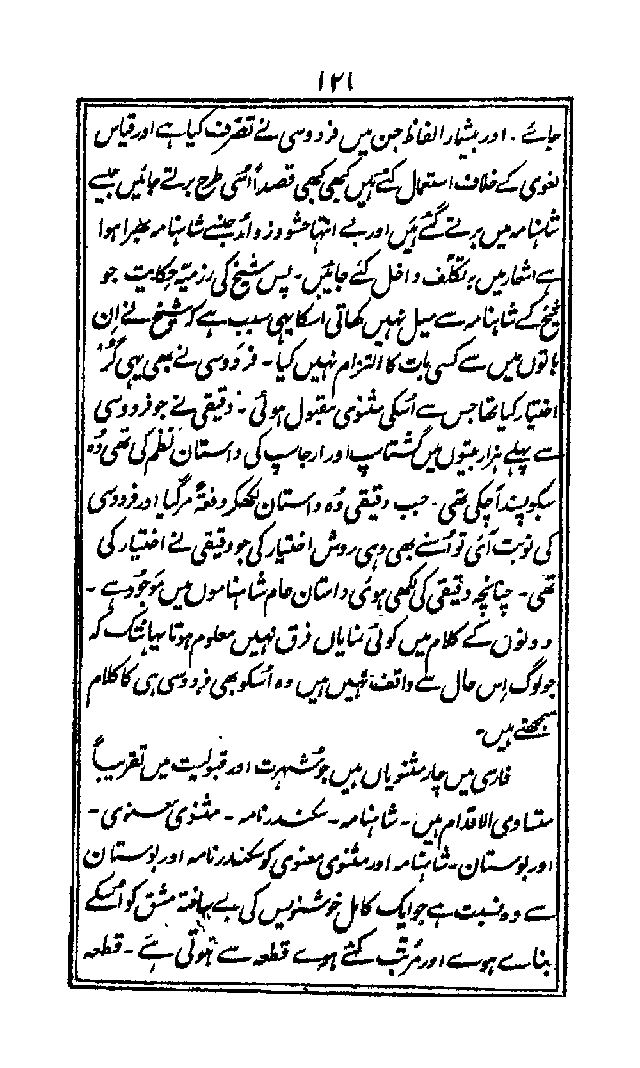 ۱۲۱
جائے۔ اور بیشمار الفاظ جن میں فردوسی نے تصرف کیا ہے اور قیاس
لغوی کے خلاف استعمال کئے ہیں کبھی کبھی قصداً اُسی طرح برتے جائیں جیسے
شاہنامہ میں برتے گئے ہیں اور بے انتہا حشو و زوائد جنسے شاہنامہ بھرا ہوا
ہے اشعار میں بہ تکلف داخل کئے جائیں۔ پس شیخ کی رزمیہ حکایت جو
شیخ کے شاہنامہ سے میل نہیں کھاتی اسکا یہی سبب ہے کہ شیخ نے اِن
باتوں میں سے کسی بات کا التزام نہیں کیا۔ فردوسی نے بھی یہی گُر
اختیار کیا تھا جس سے اُسکی مثنوی مقبول ہوئی۔ دقیقی نے جو فردوسی
سے پہلے ہزار بیتوں میں گشتاسپ اور ارجاسپ کی داستان نظم کی تھی وُہ
سبکو پسند آچکی تھی۔ جب دقیقی وُہ داستان لکھکر دفعۃً مرگیا اور فردوسی
کی نوبت آئی تو اُسنے بھی وہی روش اختیار کی جو دقیقی نے اختیار کی
تھی۔ چنانچہ دقیقی کی لکھی ہوئی داستان عام شاہناموں میں موجود ہے۔
دونوں کے کلام میں کوئی نمایاں فرق نہیں معلوم ہوتا یہانتک کہ
جو لوگ اِس حال سے واقف نہیں ہیں وہ اُسکو بھی فردوسی ہی کا کلام
سمجھتے ہیں۔
فارسی میں چار مثنویاں ہیں جو شُہرت اور قبولیت میں تقریباً
متساوی الاقدام ہیں۔ شاہنامہ۔ سکندرنامہ۔ مثنوی معنوی۔
اور بوستان۔ شاہنامہ اور مثنوی معنوی کو سکندرنامہ اور بوستان
سے وہ نسبت ہے جو ایک کامل خوشنویس کی بے ساختہ مشق کو اُسکے
بنائے ہوے اور مُرتب کئے ہوے قطعہ سے ہوتی ہے۔ قطعہ